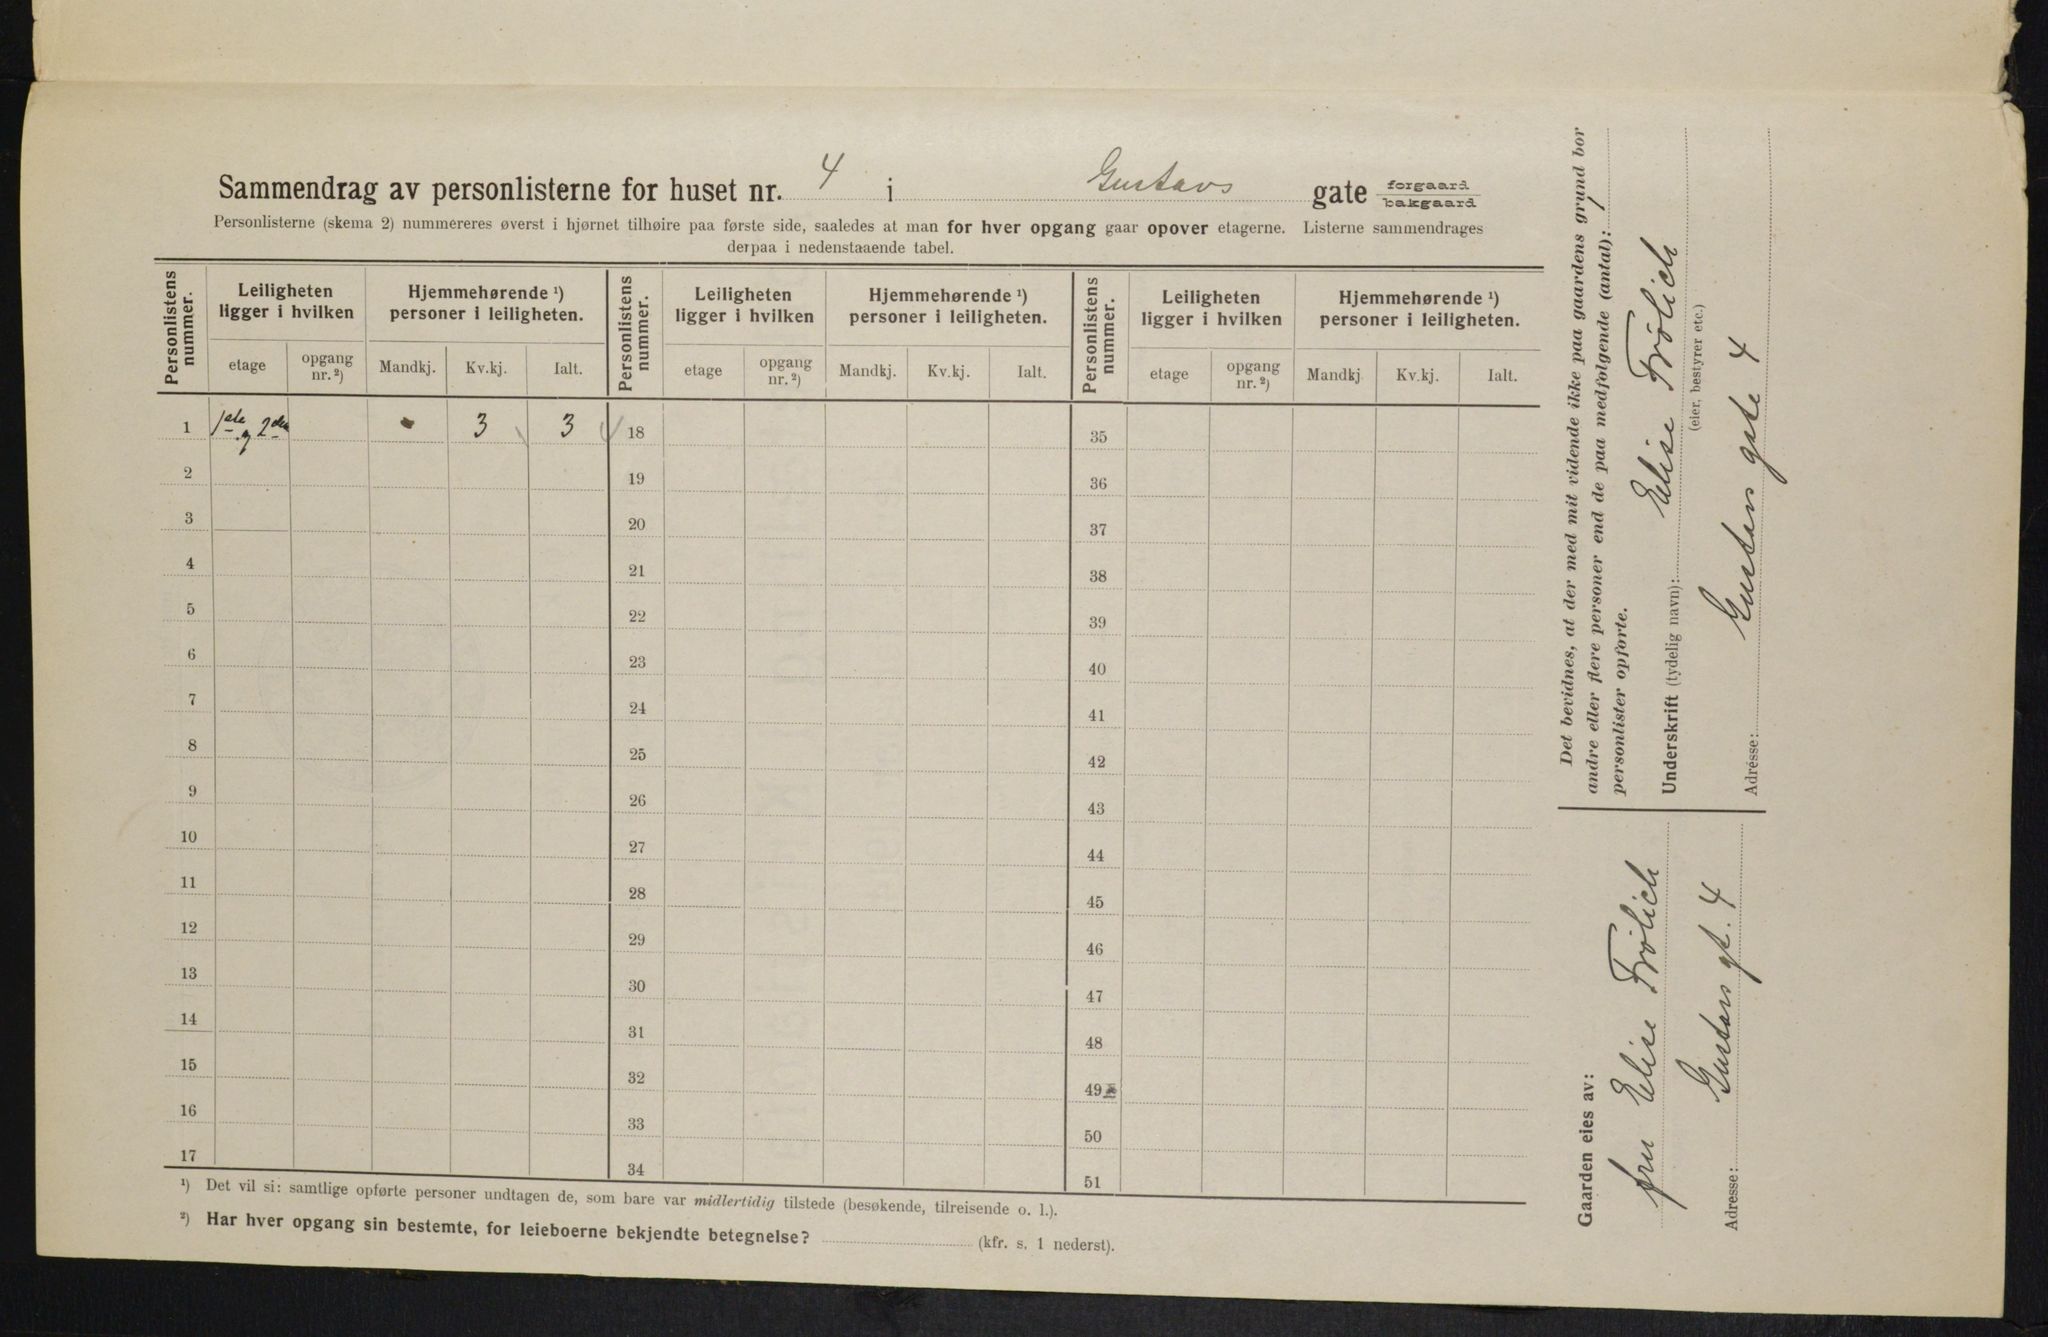 Sammendrag av personlisterne for huset nr. 4 i Gustavs gate forgaard bakgaard
Personlisterne (skema 2) nummereres øverst i hjørnet tilhøire paa første side, saaledes at man for hver opgang gaar opover etagerne. Listerne sammendrages
derpaa i nedenstaaende tabel.
Personlistens nummer. Leiligheten ligger i hvilken Hjemmehørende ¹) personer i leiligheten. Personlistens nummer. Leiligheten ligger i hvilken Hjemmehørende ¹) personer i leiligheten. Personlistens nummer. Leiligheten ligger i hvilken Hjemmehørende ¹) personer i leiligheten.
etage opgang nr. ²) Mandkj. Kv.kj. Ialt. etage opgang nr. ²) Mandkj. Kv.kj. Ialt. etage opgang nr. ²) Mandkj. Kv.kj. Ialt.
1 1ste og 2den 3 3 18 35
2 19 36
3 20 37
4 21 38
5 22 39
6 23 40
7 24 41
8 25 42
9 26 43
10 27 44
11 28 45
12 29 46
13 30 47
14 31 48
15 32 49
16 33 50
17 34 51
¹) Det vil si: samtlige opførte personer undtagen de, som bare var midlertidig tilstede (besøkende, tilreisende o. l.).
²) Har hver opgang sin bestemte, for leieboerne bekjendte betegnelse? (kfr. s. 1 nederst).
Det bevidnes, at der med mit vidende ikke paa gaardens grund bor
andre eller flere personer end de paa medfølgende (antal): 1
personlister opførte.
Underskrift (tydelig navn): Elise Frölich
(eier, bestyrer etc.)
Adresse: Gustavs gate 4
Gaarden eies av:
fru Elise Frölich
Adresse: Gustavs gt. 4